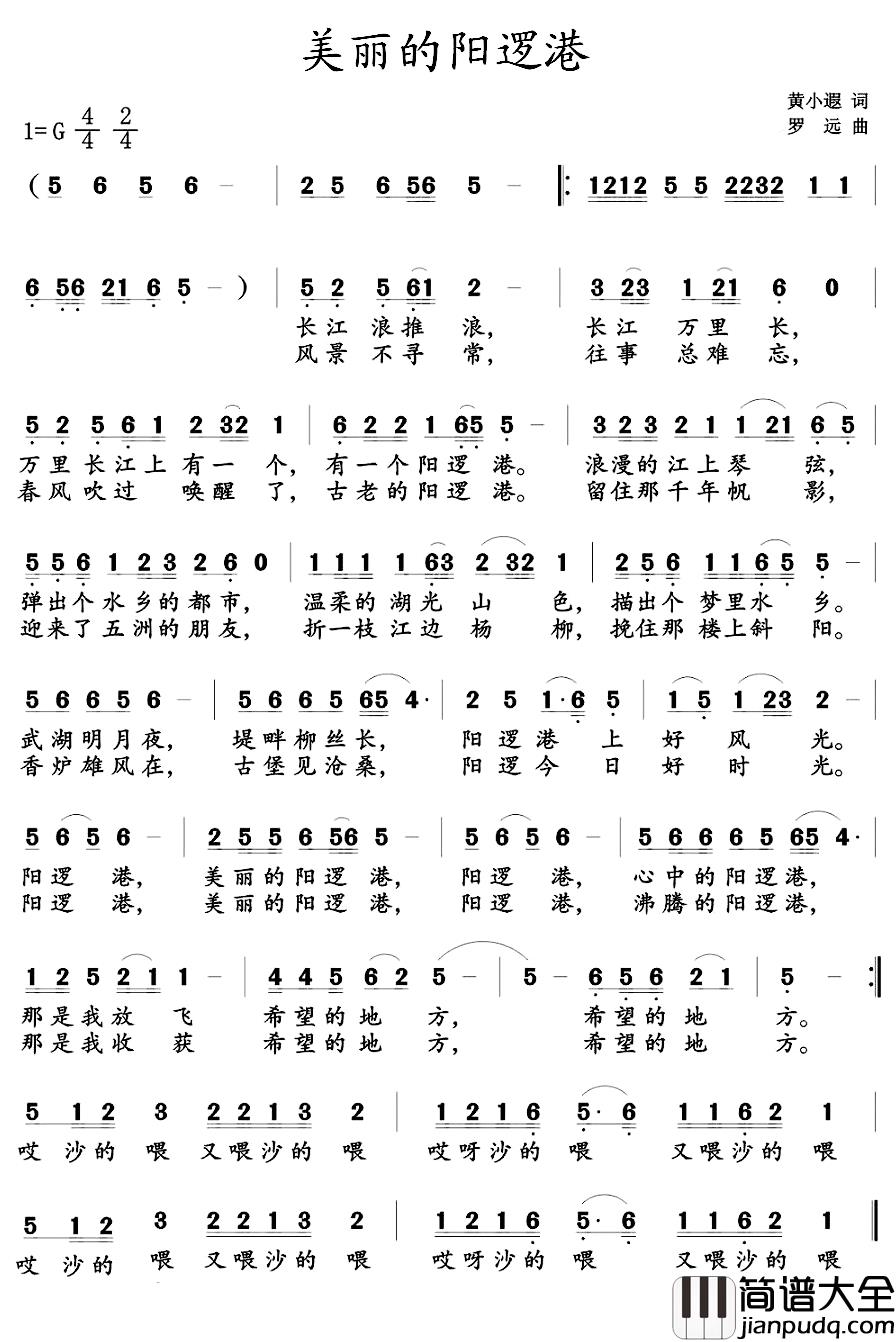 美丽的阳逻港
黄小遐 词
1=G 4/4 2/4
罗 远 曲
(5 6 5 6 - | 2 5 6 56 5 - |: 1212 5 5 2232 1 1 |
6 56 21 6 5 - ) | 5 2 5 61 2 - | 3 23 1 21 6 0 |
长江浪推浪， 长江万里长，
风景不寻常， 往事总难忘，
5 2 5 6 1 2 32 1 | 6 2 2 1 65 5 - | 3 2 3 2 1 1 21 6 5 |
万里长江上有一个，有一个阳逻港。 浪漫的江上琴弦，
春风吹过唤醒了，古老的阳逻港。 留住那千年帆影，
5 5 6 1 2 3 2 6 0 | 1 1 1 1 63 2 32 1 | 2 5 6 1 1 6 5 5 - |
弹出个水乡的都市， 温柔的湖光山色，描出个梦里水乡。
迎来了五洲的朋友， 折一枝江边杨柳，挽住那楼上斜阳。
5 6 6 5 6 - | 5 6 6 5 65 4· | 2 5 1·6 5 | 1 5 1 23 2 - |
武湖明月夜， 堤畔柳丝长， 阳逻港上好风光。
香炉雄风在， 古堡见沧桑， 阳逻今日好时光。
5 6 5 6 - | 2 5 5 6 56 5 - | 5 6 5 6 - | 5 6 6 6 5 65 4· |
阳逻港， 美丽的阳逻港， 阳逻港， 心中的阳逻港，
阳逻港， 美丽的阳逻港， 阳逻港， 沸腾的阳逻港，
1 2 5 2 1 1 - | 4 4 5 6 2 5 - | 5 - 6 5 6 2 1 | 5 - :|
那是我放飞 希望的地方， 希望的地方。
那是我收获 希望的地方， 希望的地方。
5 1 2 3 2 2 1 3 2 | 2 1 2 1 6 5· 6 1 1 6 2 1 |
哎沙的喂又喂沙的喂 哎呀沙的喂 又喂沙的喂
5 1 2 3 2 2 1 3 2 | 2 1 2 1 6 5· 6 1 1 6 2 1 |
哎沙的喂又喂沙的喂 哎呀沙的喂 又喂沙的喂
简谱大全
jianpudq.com